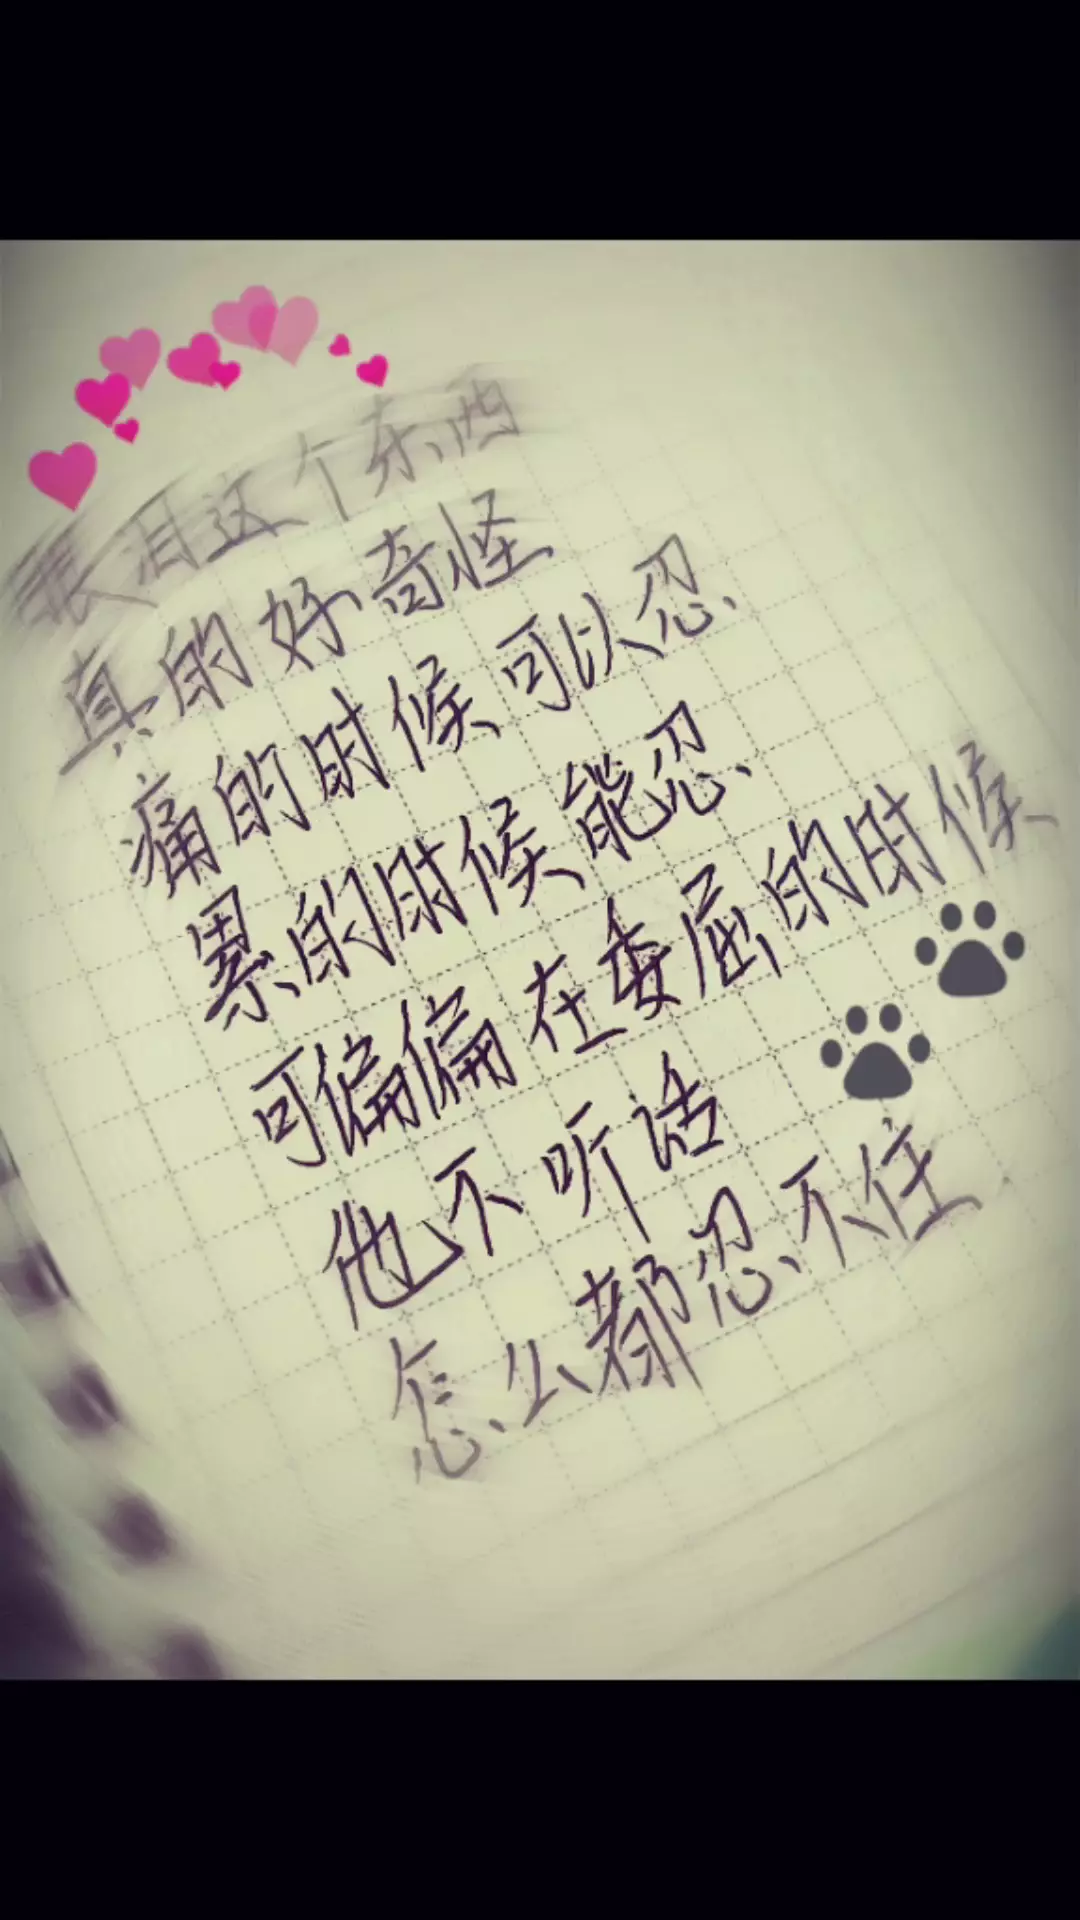 眼泪这个东西
真的好奇怪
痛的时候可以忍
累的时候能忍
可偏偏在委屈的时候
他不听话
怎么都忍不住